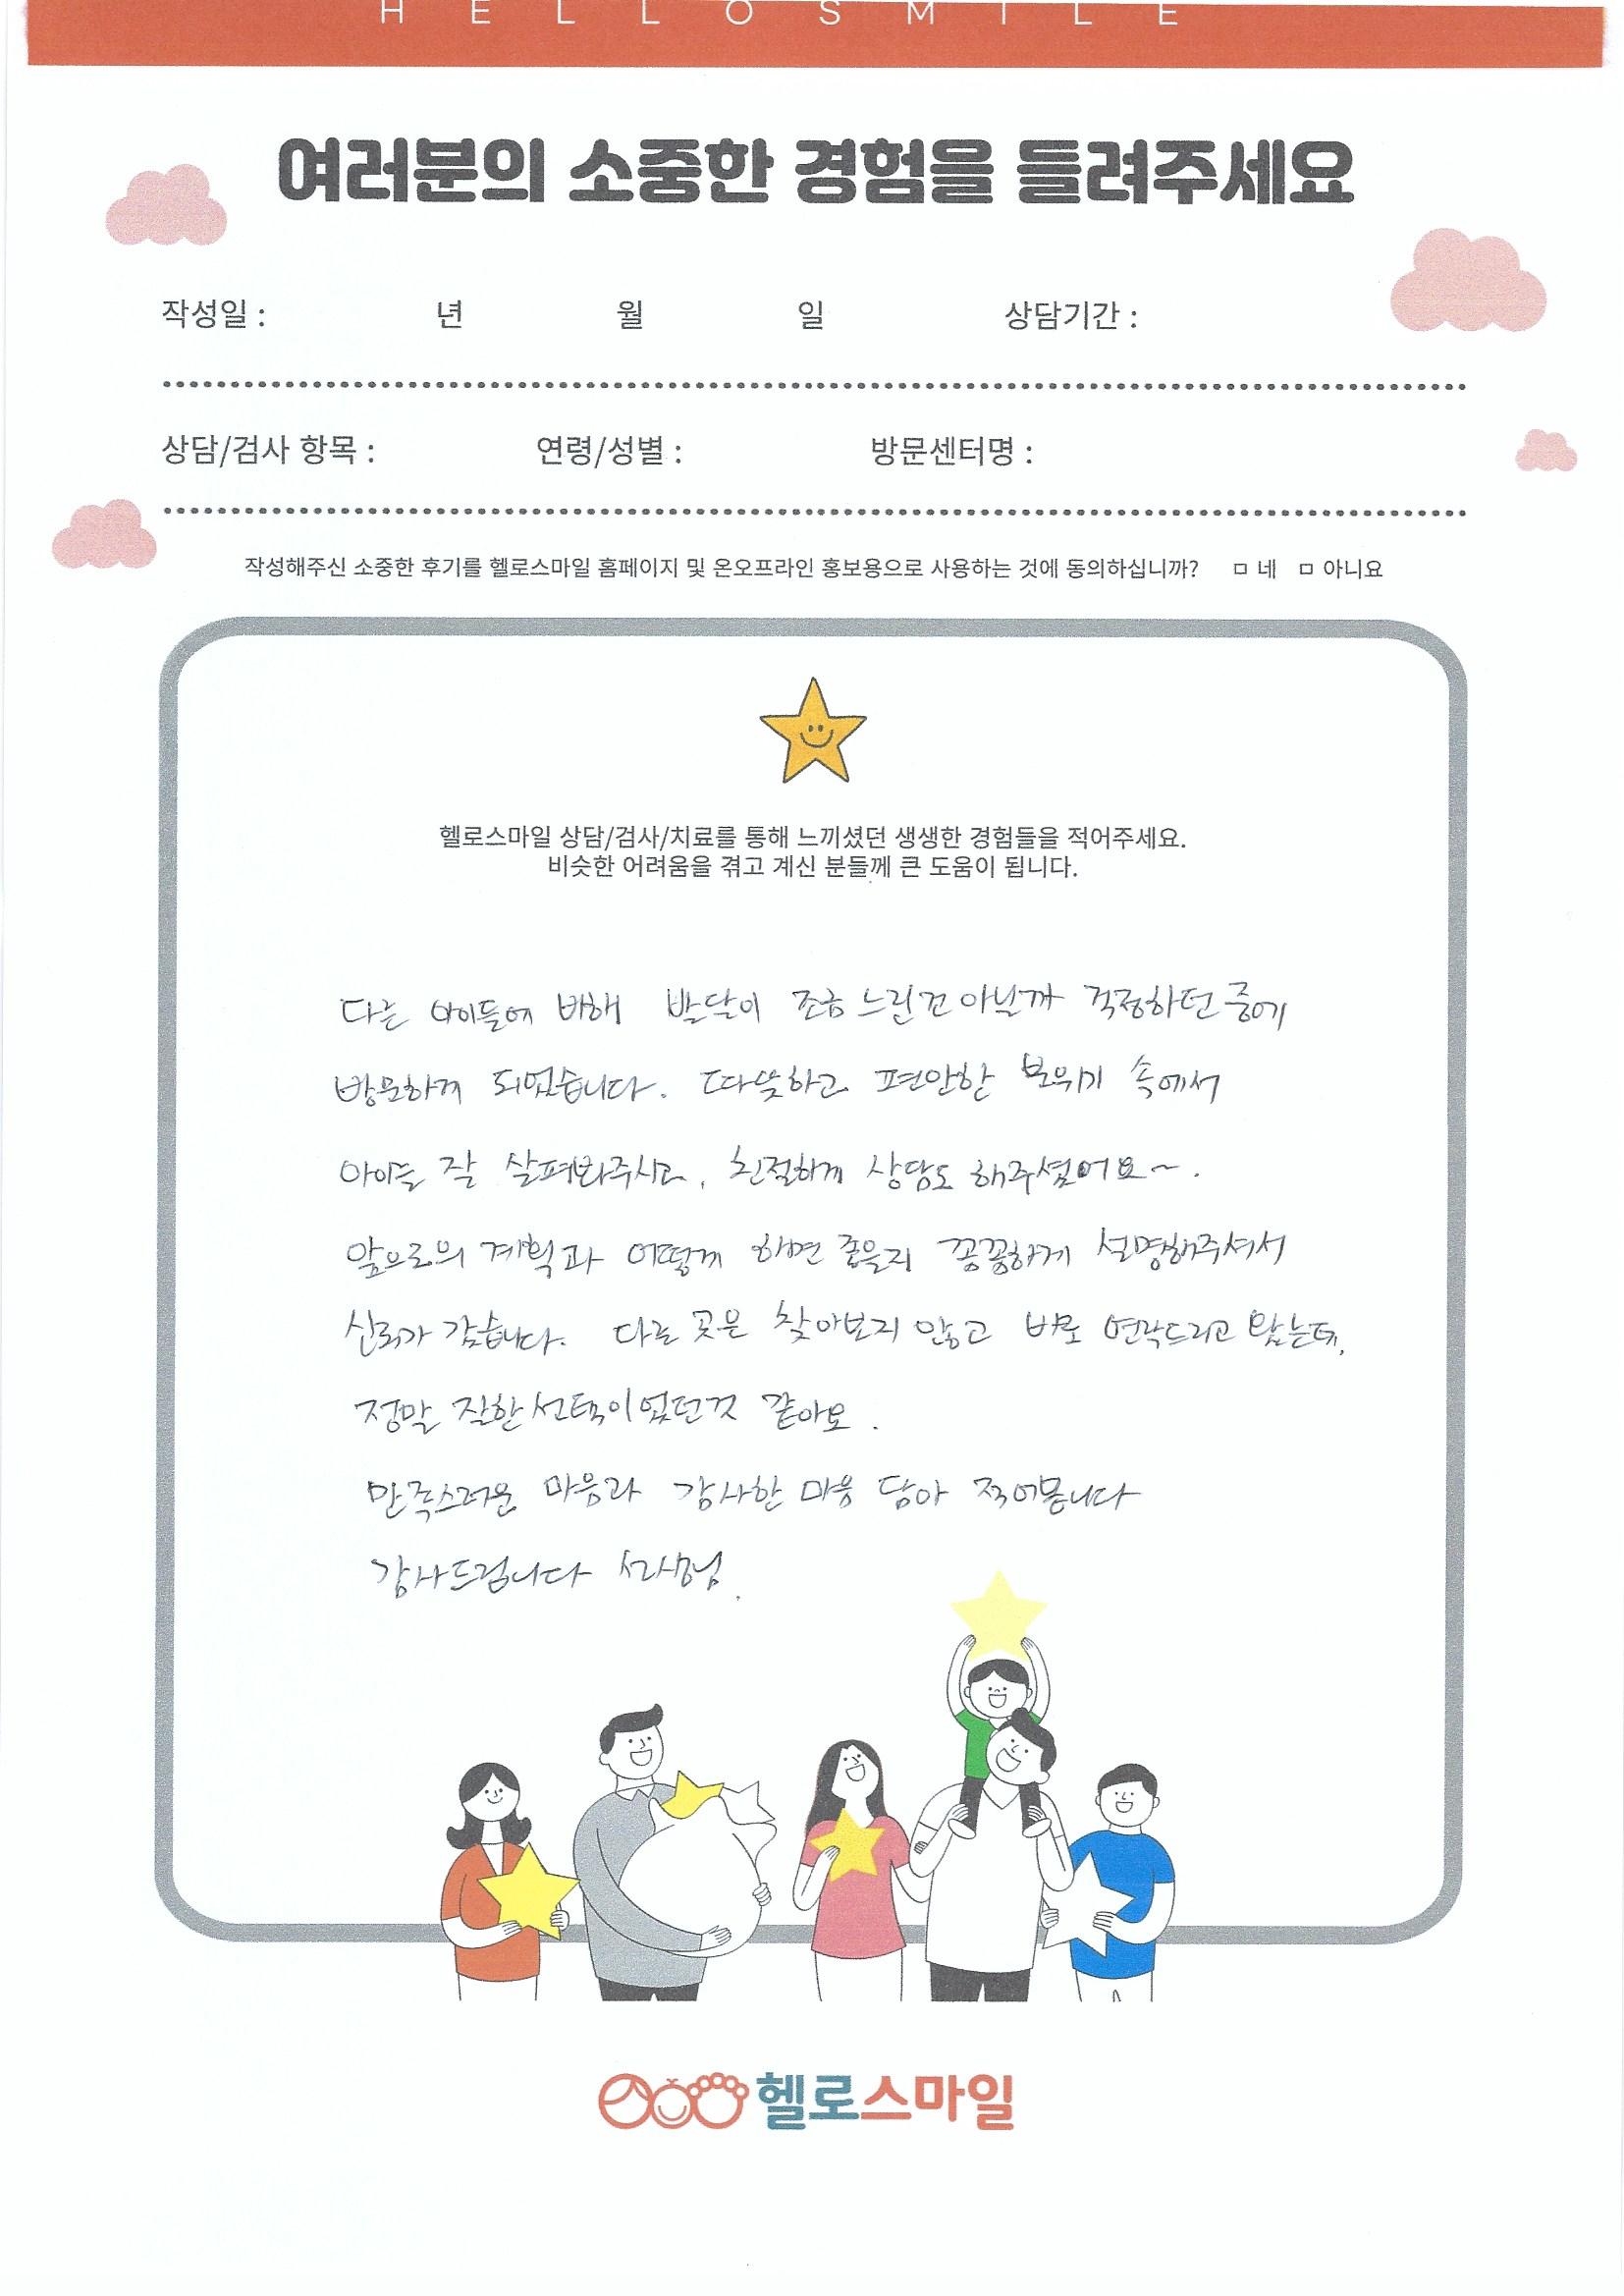 HELLOSMILE
여러분의 소중한 경험을 들려주세요
작성일 : 년 월 일 상담기간 :
상담/검사 항목 : 연령/성별 : 방문센터명 :
작성해주신 소중한 후기를 헬로스마일 홈페이지 및 온오프라인 홍보용으로 사용하는 것에 동의하십니까? ㅁ 네 ㅁ 아니요
헬로스마일 상담/검사/치료를 통해 느끼셨던 생생한 경험들을 적어주세요.
비슷한 어려움을 겪고 계신 분들께 큰 도움이 됩니다.
다른 아이들에 비해 발달이 조금 느린건 아닐까 걱정하던 중에
방문하게 되었습니다. 따뜻하고 편안한 분위기 속에서
아이를 잘 살펴봐주시고, 친절하게 상담도 해주셨어요~.
앞으로의 계획과 어떻게 하면 좋을지 꼼꼼하게 설명해주셔서
신뢰가 갔습니다. 다른 곳은 찾아보지 않고 바로 연락드리고 왔는데,
정말 잘한 선택이었던것 같아요.
만족스러운 마음과 감사한 마음 담아 적어봅니다
감사드립니다 선생님.
헬로스마일